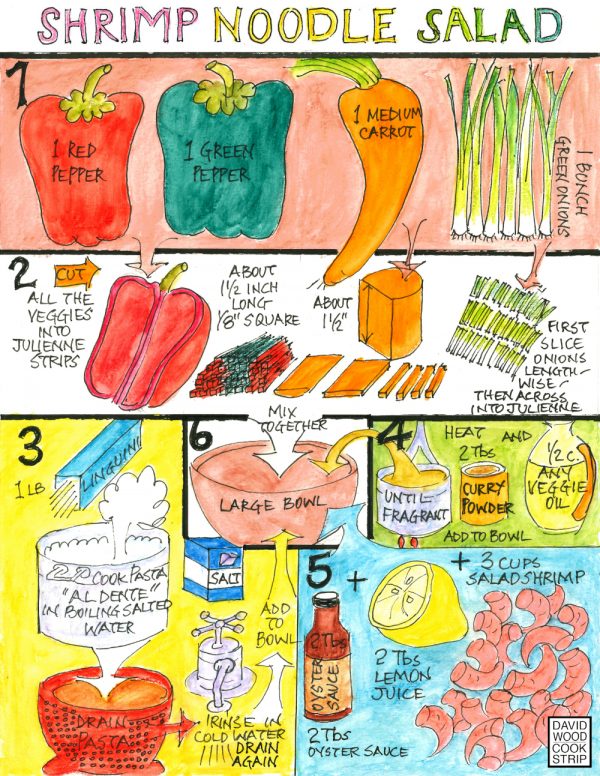 SHRIMP NOODLE SALAD
1
1 RED
PEPPER
1 GREEN
PEPPER
1 MEDIUM
CARROT
1 BUNCH
GREEN ONIONS
2
CUT
ALL THE
VEGGIES
INTO
JULIENNE
STRIPS
ABOUT
1 1/2 INCH
LONG
1/8" SQUARE
ABOUT
1 1/2"
FIRST
SLICE
ONIONS
LENGTH-
WISE-
THEN ACROSS
INTO JULIENNE
3
1 LB
LINGUINI
COOK PASTA
"AL DENTE"
IN BOILING SALTED
WATER
DRAIN
PASTA
SALT
RINSE IN
COLD WATER
DRAIN
AGAIN
ADD
TO
BOWL
6
MIX
TOGETHER
LARGE BOWL
4
HEAT AND
UNTIL
FRAGRANT
2 Tbs
CURRY
POWDER
1/2 C.
ANY
VEGGIE
OIL
ADD TO BOWL
5
+
+ 3 CUPS
SALAD SHRIMP
2 Tbs
OYSTER
SAUCE
2 Tbs
OYSTER SAUCE
2 Tbs
LEMON
JUICE
DAVID
WOOD
COOK
STRIP